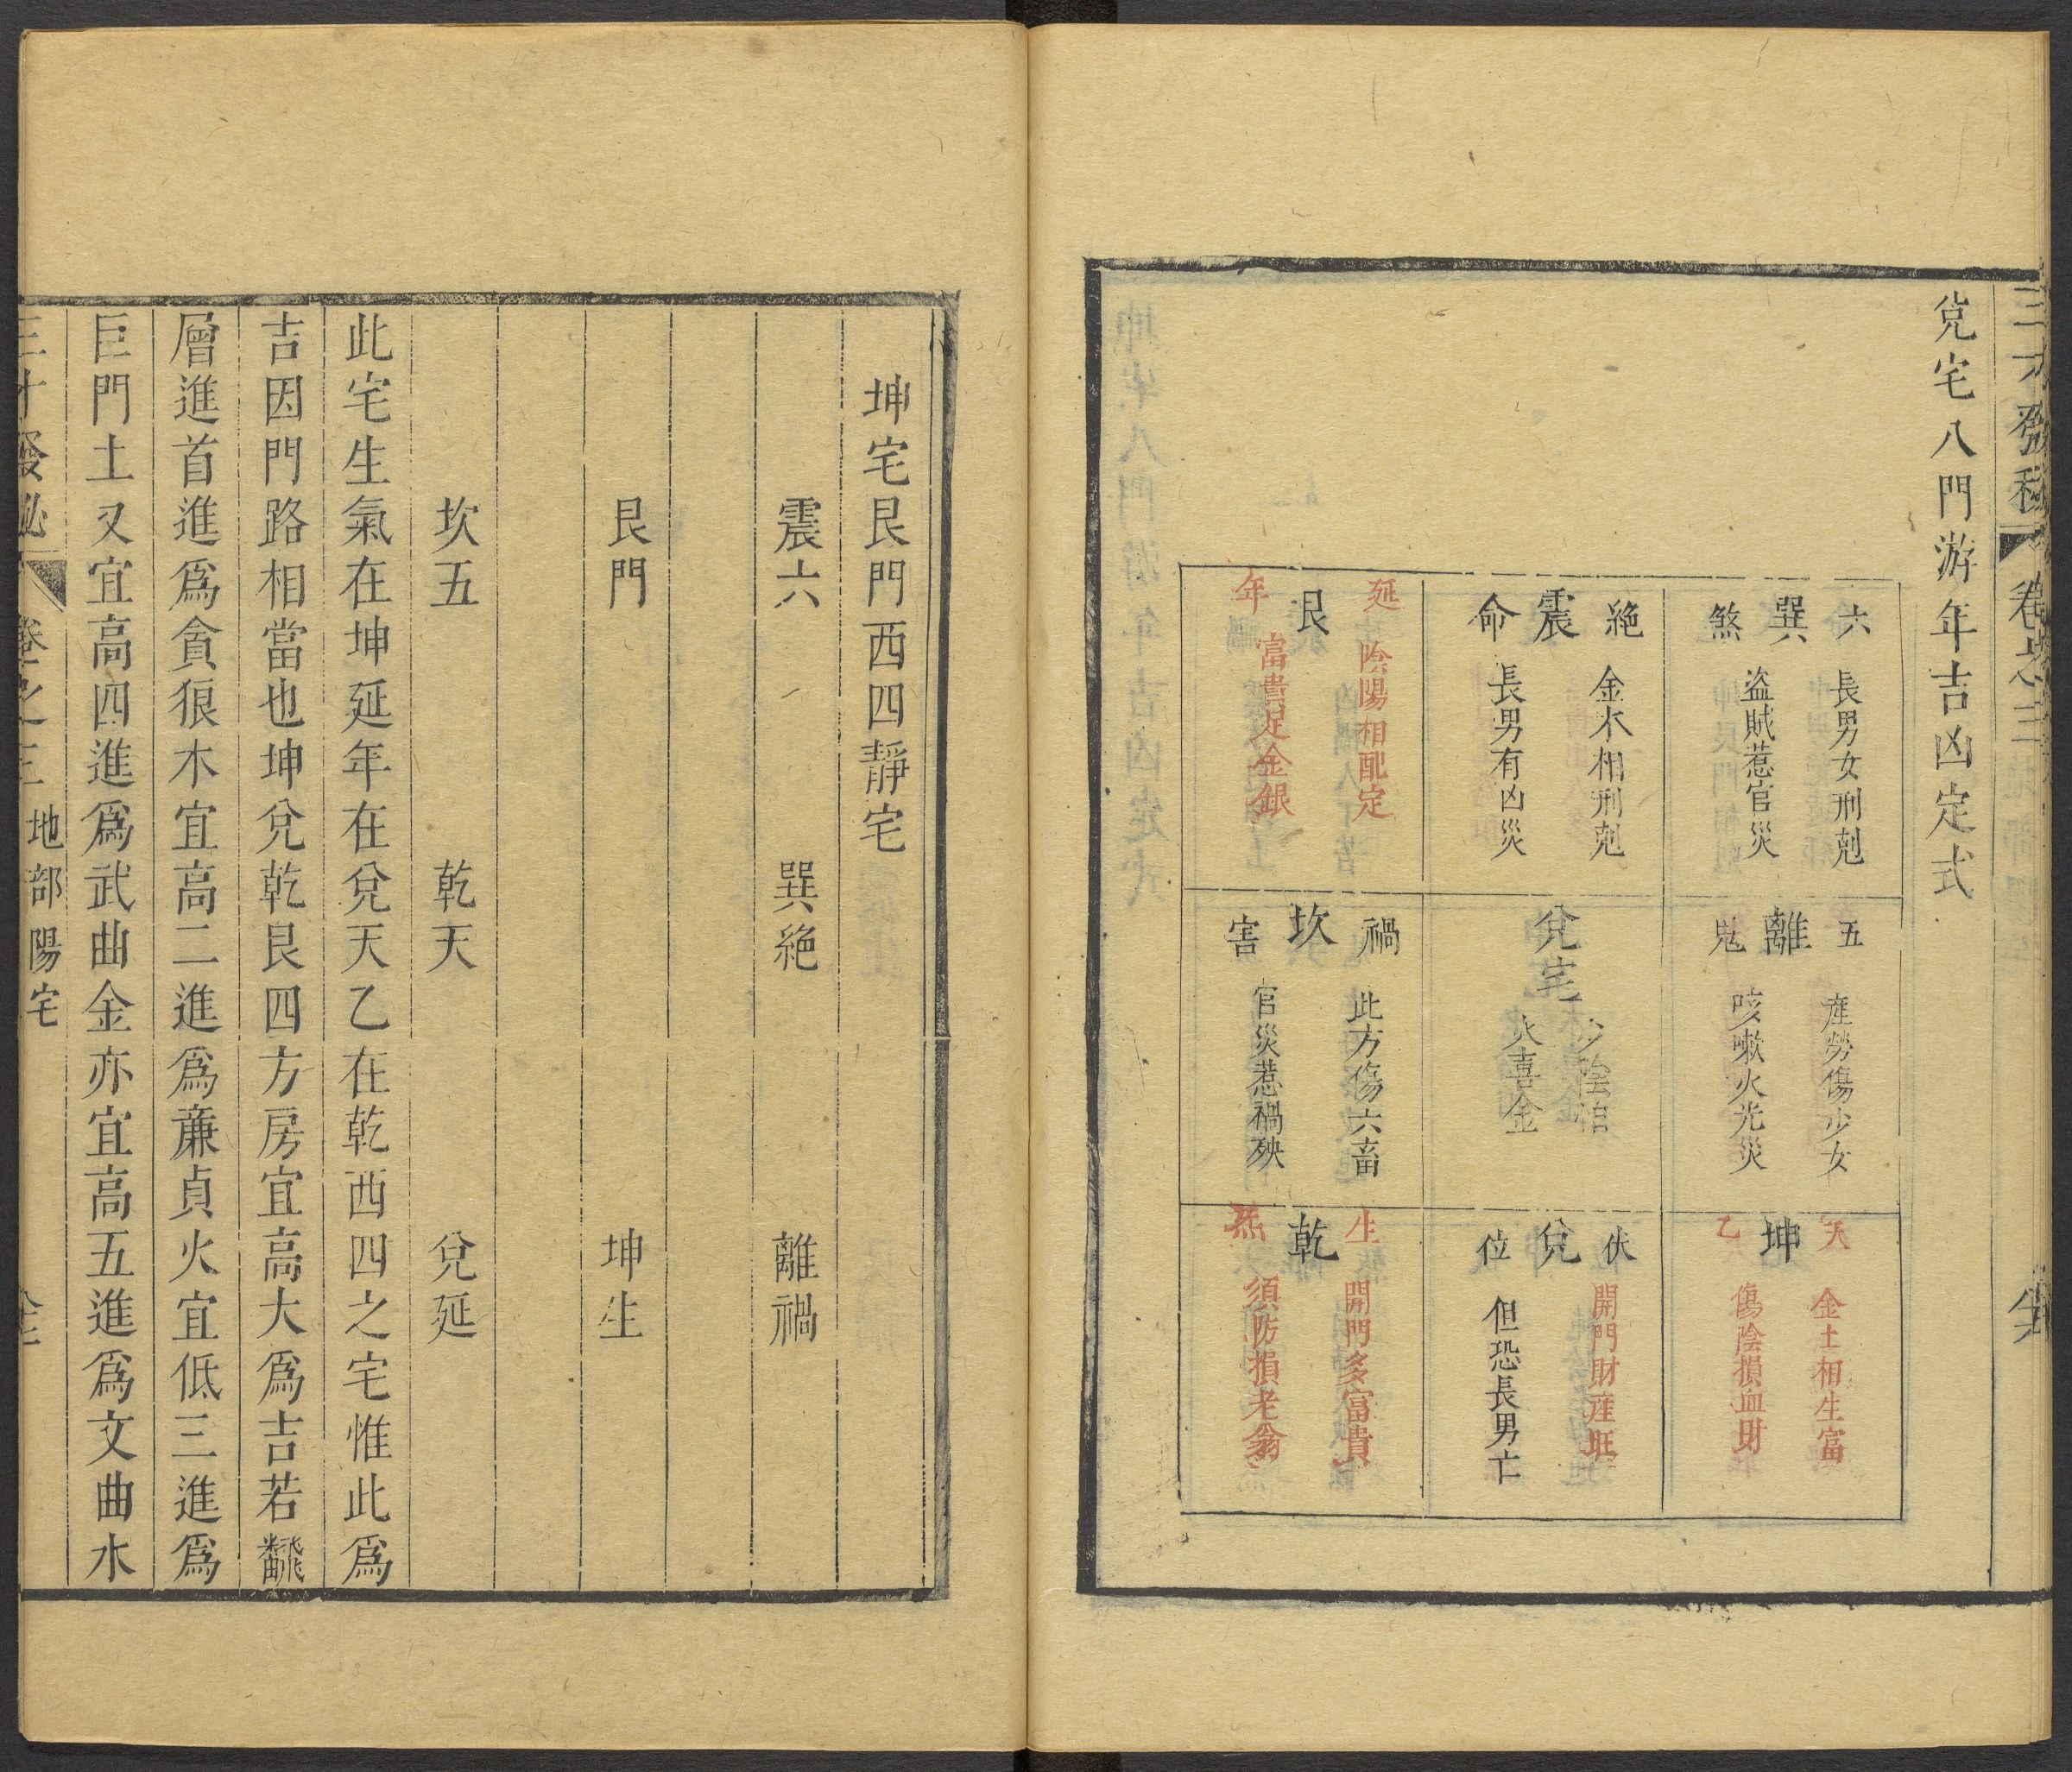 三才發秘 卷之三
兌宅八門游年吉凶定式
六巽煞
長男女刑剋
盜賊惹官災
絶震命
金木相刑剋
長男有凶災
延艮年
陰陽相配定
富貴足金銀
五離鬼
産勞傷少女
咳嗽火光災
兌宅
火喜金
禍坎害
此方傷六畜
官災惹禍殃
天坤乙
金土相生富
傷陰損血財
伏兌位
開門財産旺
但恐長男亡
生乾炁
開門多富貴
須防損老翁
坤宅艮門西四靜宅
震六 巽絶 離禍
艮門 坤生
坎五 乾天 兌延
此宅生氣在坤延年在兌天乙在乾西四之宅惟此爲
吉因門路相當也坤兌乾艮四方房宜高大爲吉若飜
層進首進爲貪狼木宜高二進爲亷貞火宜低三進爲
巨門土又宜高四進爲武曲金亦宜高五進爲文曲水
三才發秘 卷之三 地部陽宅